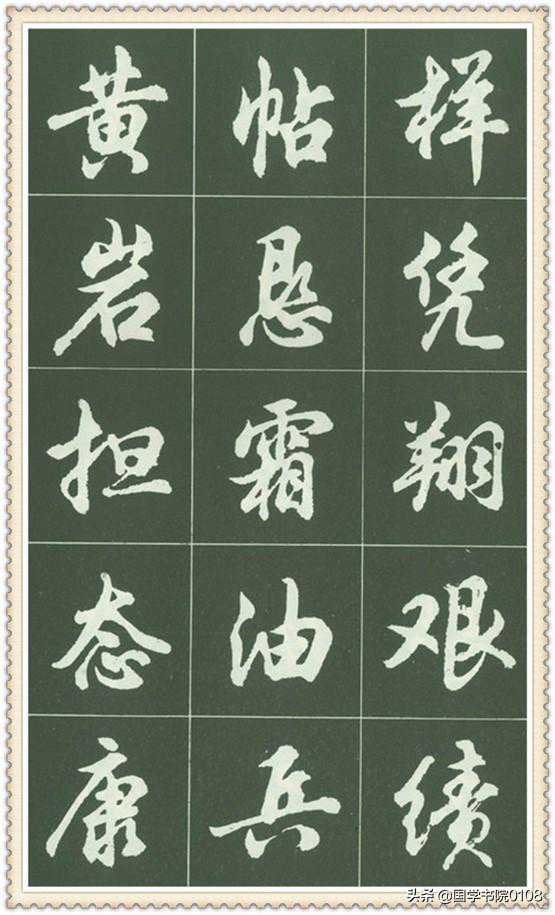 样凭翔艰绩
帖恳霜油兵
黄岩担态康
头条 @国学书院0108